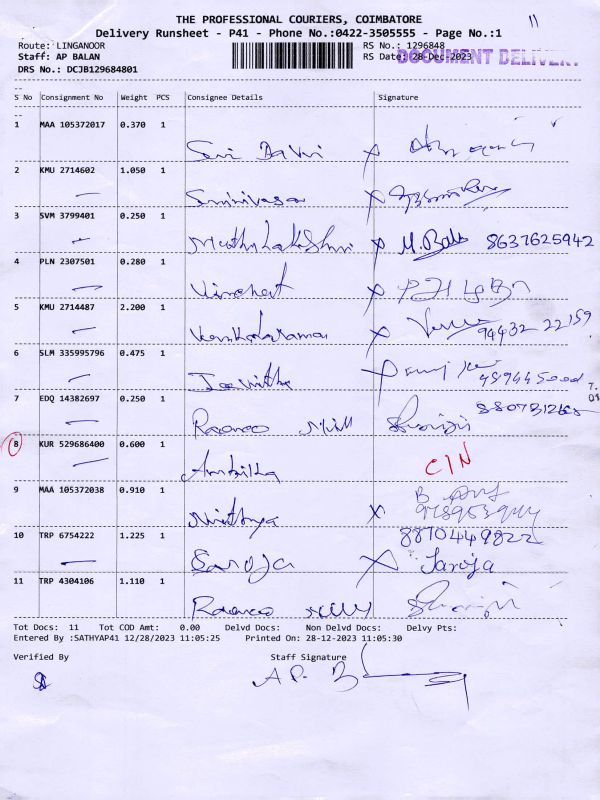 THE PROFESSIONAL COURIERS, COIMBATORE 11
Delivery Runsheet - P41 - Phone No.:0422-3505555 - Page No.:1
Route: LINGANOOR RS No.: 1296848
Staff: AP BALAN RS Date: 28-Dec-2023 DOCUMENT DELIVERY
DRS No.: DCJB129684801
S No Consignment No Weight PCS Consignee Details Signature
1 MAA 105372017 0.370 1
Sri Devi x
2 KMU 2714602 1.050 1
Srinivasa x
3 SVM 3799401 0.250 1
Muthulakshmi x M. Bala 8637625942
4 PLN 2307501 0.280 1
Vincent x
5 KMU 2714487 2.200 1
Venkatarama x 94432 22159
6 SLM 335995796 0.475 1
Jeevitha
7 EDQ 14382697 0.250 1
Mill
8 KUR 529686400 0.600 1 C/N
9 MAA 105372038 0.910 1
Nithya x
10 TRP 6754222 1.225 1 8870449822
Saroja x Saroja
11 TRP 4304106 1.110 1
Tot Docs: 11 Tot COD Amt: 0.00 Delvd Docs: Non Delvd Docs: Delvy Pts:
Entered By :SATHYAP41 12/28/2023 11:05:25 Printed On: 28-12-2023 11:05:30
Verified By Staff Signature
A.P. B